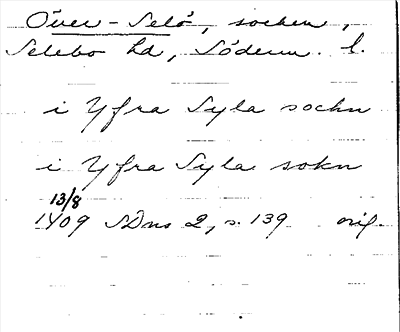 Över-Selö, socken,
Selebo hd, Söderm. l.
i Yfra Syla sochn
i Yfra Syla sokn
13/8
1409 SDns 2, s. 139 orig.